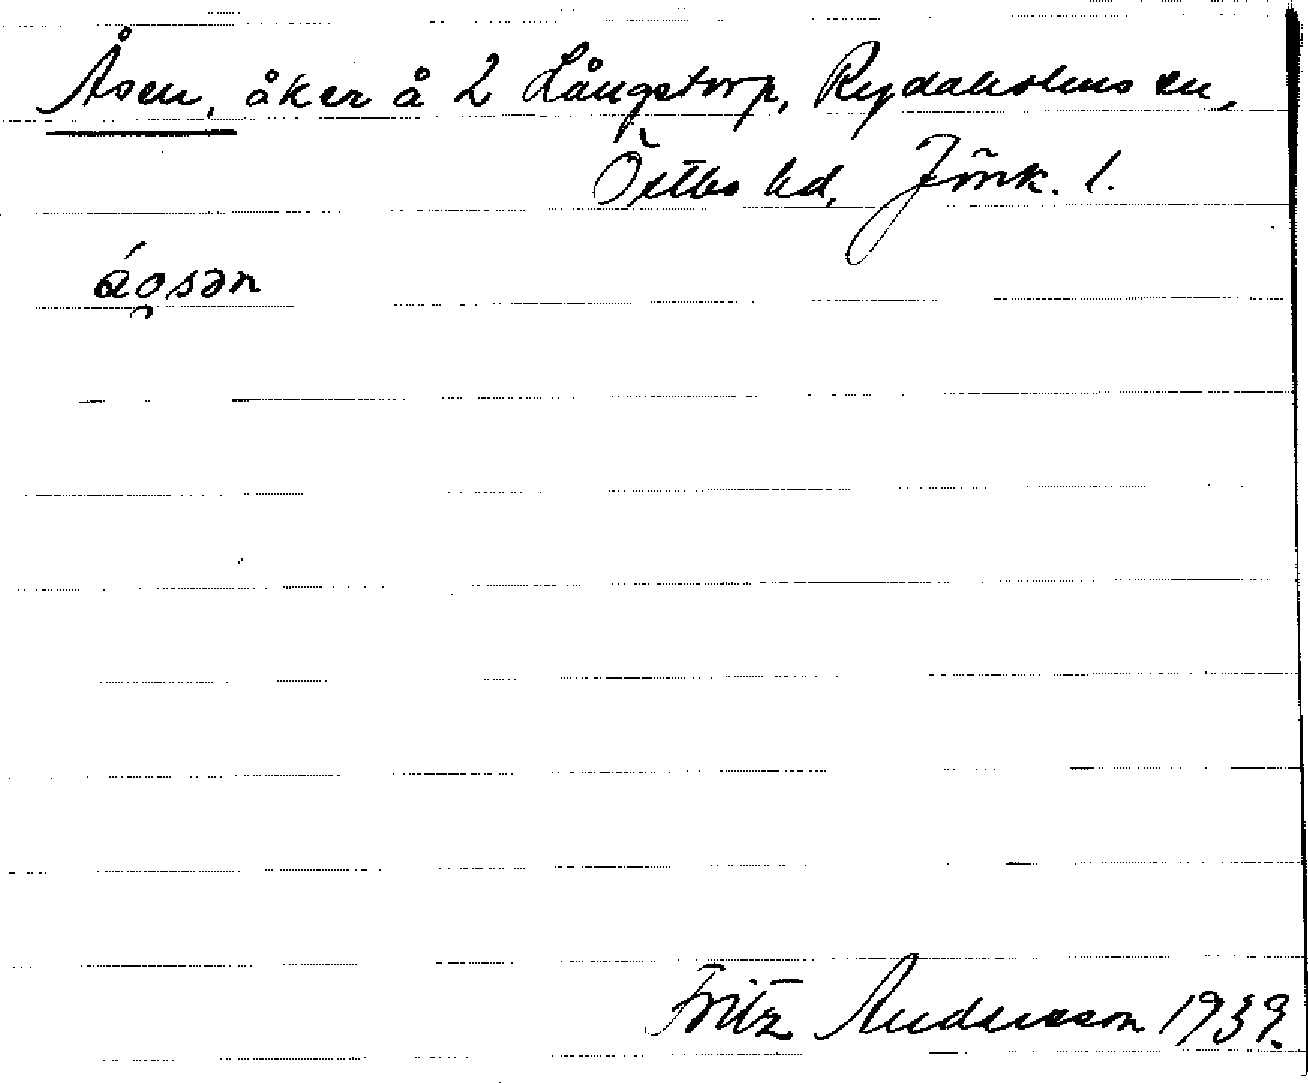 Åsen, åker å 2 Långstorp, Rydaholms sn,
Östbo hd, Jönk. l.
áo̜sən
Fritz Andersson 1939.